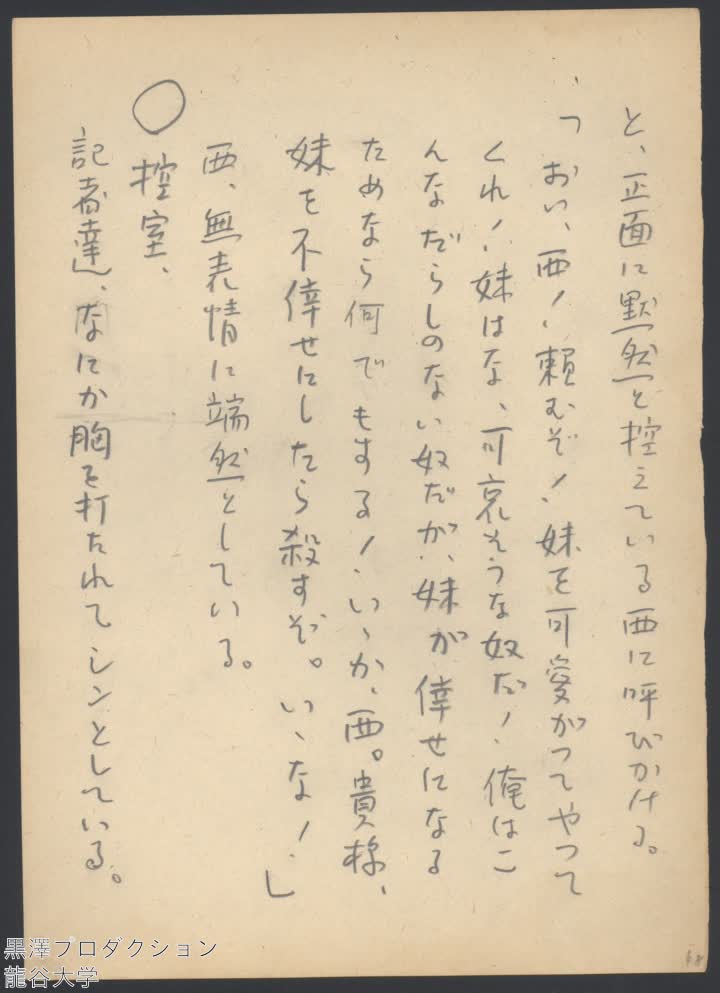 と、正面に黙然と控えている西に呼びかける。
「おい、西!、頼むぞ!、妹を可愛がつてやつて
くれ!、妹はな、可哀そうな奴だ!、俺はこ
んなだらしのない奴だが、妹が倖せになる
ためなら何でもする!、いゝか、西。貴様、
妹を不倖せにしたら殺すぞ。いゝな!、」
西、無表情に端然としている。
○控室、
記者達、なにか胸を打たれてシンとしている。
黒澤プロダクション
龍谷大学